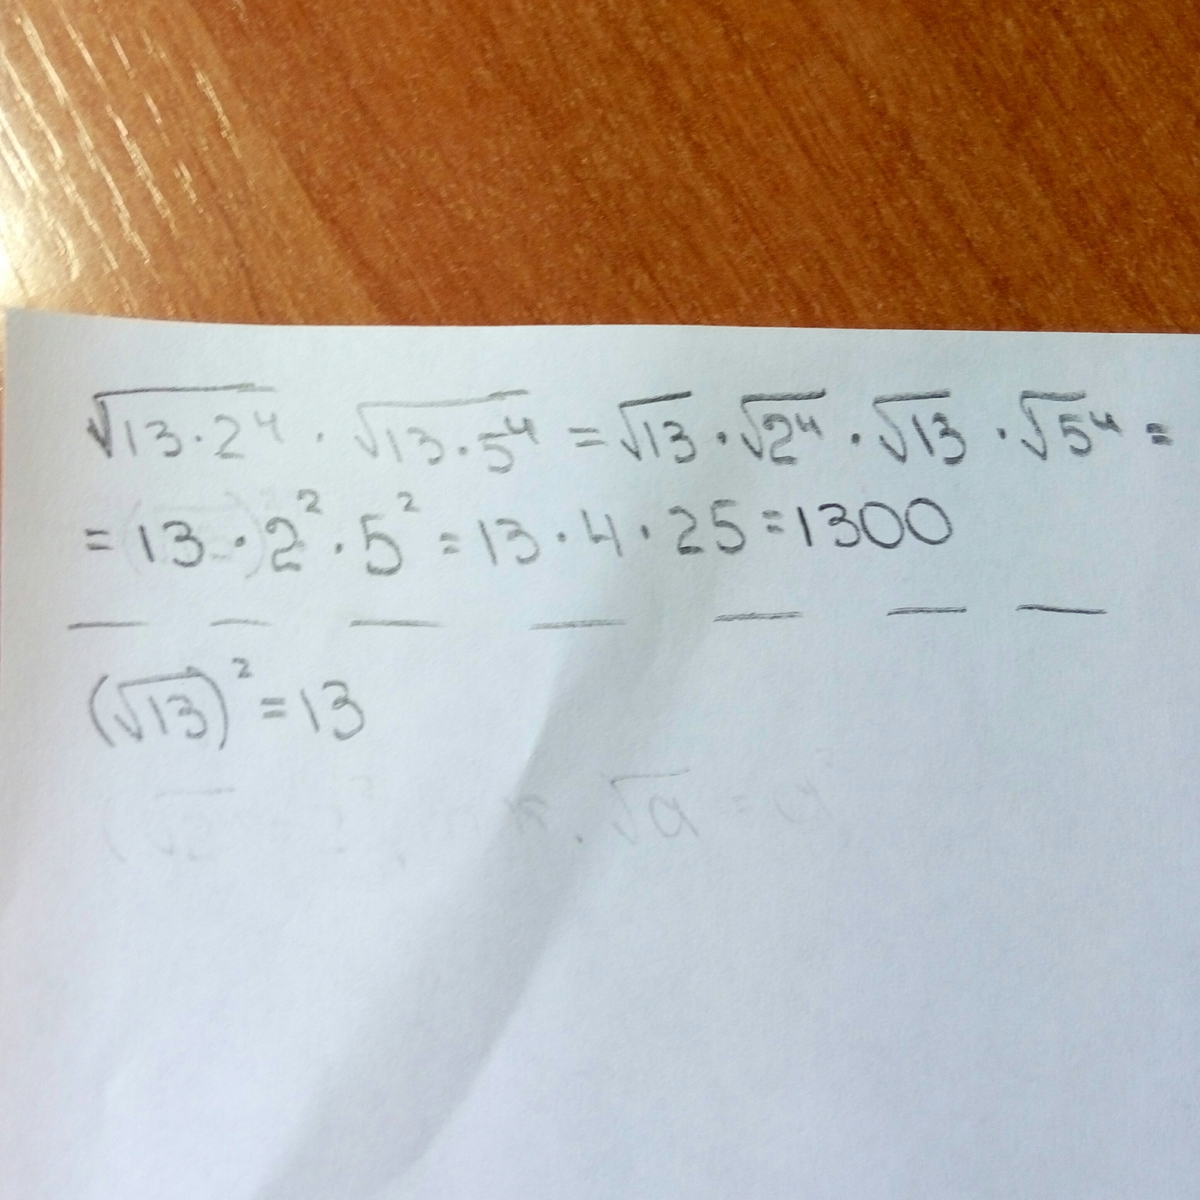 √13·2⁴ · √13·5⁴ = √13 · √2⁴ · √13 · √5⁴ =
= 13 · 2² · 5² = 13 · 4 · 25 = 1300
— — — — — — —
(√13)² = 13
√a = a